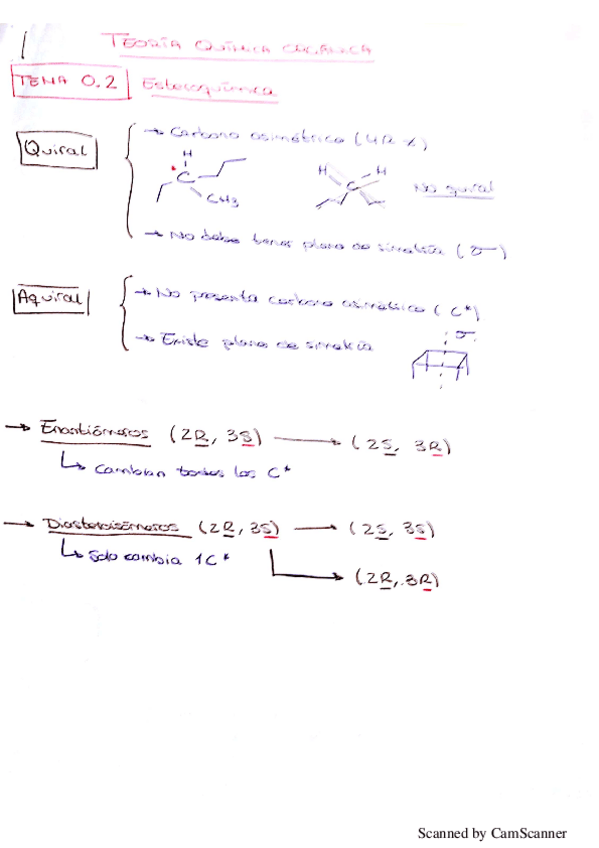 TEORÍA QUÍMICA ORGÁNICA
TEMA 0.2 Estereoquímica
Quiral
→ Carbono asimétrico (4R ≠)
H
C
CH3
H H
C
No quiral
→ No debe tener plano de simetría (σ)
Aquiral
→ No presenta carbono asimétrico (C*)
→ Existe plano de simetría
σ
→ Enantiómeros (2R, 3S) → (2S, 3R)
↳ Cambian todos los C*
→ Diasteroisómeros (2R, 3S) → (2S, 3S)
↳ Solo cambia 1C*
→ (2R, 3R)
Scanned by CamScanner